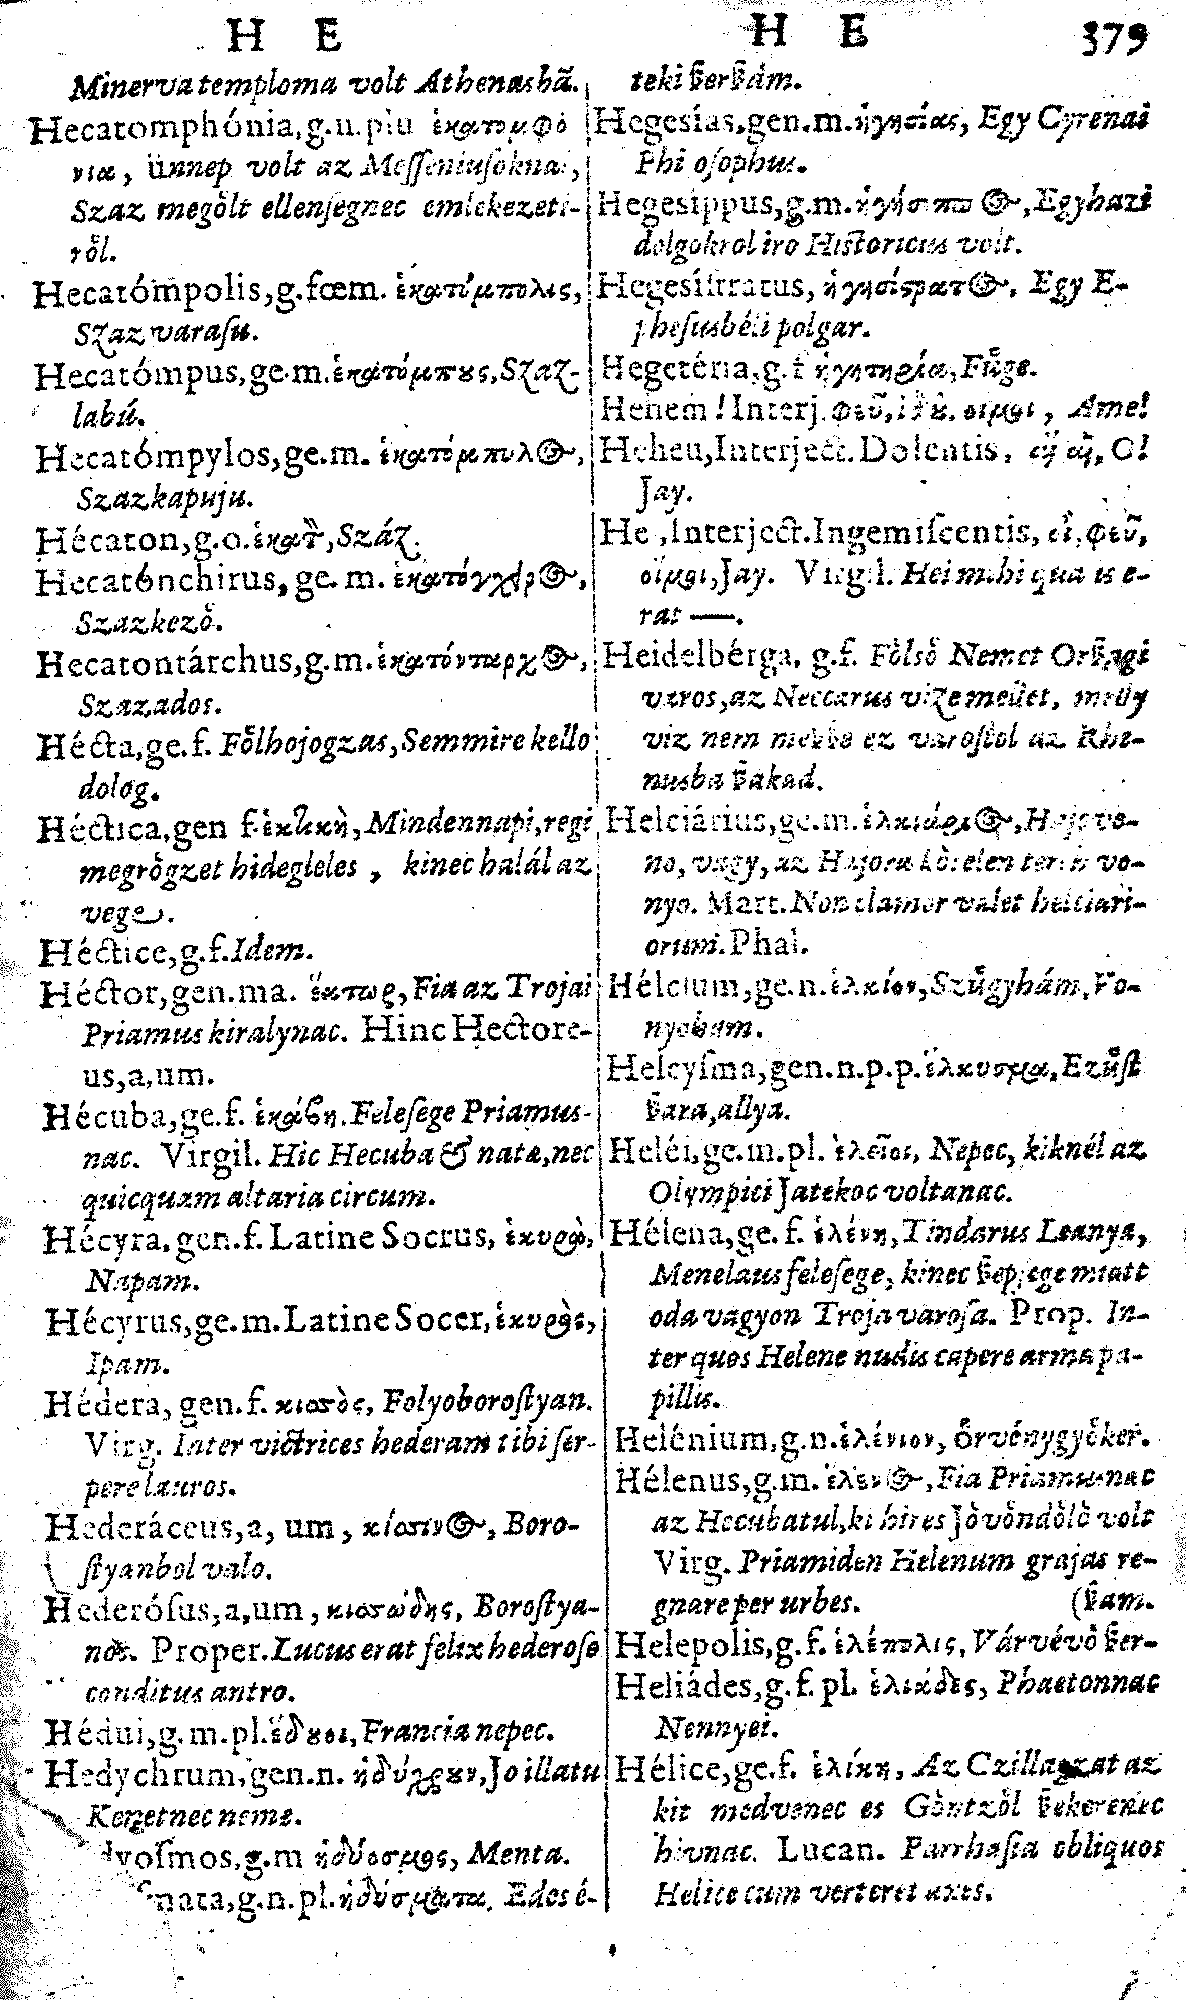 H E
Minerva temploma volt Athenasbã.
Hecatomphónia, g.n. plu ἑκατομφό
νια, ünnep volt az Messeniusokna
Szaz megőlt ellensegnec emlekezeti-
ről.
Hecatómpolis, g. fœm. ἑκατόμπολις,
Szaz varasu.
Hecatómpus, ge. m. ἑκατόμπους, Szaz-
labú.
Hecatómpylos, ge. m. ἑκατόμπυλος,
Szazkapuju.
Hécaton, g. o. ἑκατὸν, Száz.
Hecatónchirus, ge. m. ἑκατόγχειρος,
Szazkezö.
Hecatontárchus, g. m. ἑκατόνταρχος,
Szazados.
Hécta, ge. f. Főlhojogzas, Semmire kello
dolog.
Héctica, gen f. ἑκτικὴ, Mindennapi, regi
megrögzet hidegleles, kinec halál az
vege.
Héctice, g. f. Idem.
Héctor, gen. ma. ἕκτωρ, Fia az Trojai
Priamus kiralynac. Hinc Hectore-
us, a, um.
Hécuba, ge. f. ἑκάβη. Felesege Priamus-
nac. Virgil. Hic Hecuba & natæ, nec
quicquam altaria circum.
Hécyra, gen. f. Latine Socrus, ἑκυρὰ,
Napam.
Hécyrus, ge. m. Latine Socer, ἑκυρὸς,
Ipam.
Hédera, gen. f. κισσὸς, Folyoborostyan.
Virg. Inter victrices hederam tibi ser-
pere lauros.
Hederáceus, a, um, κίσσινος, Boro-
styanbol valo.
Hederósus, a, um, κισσώδης, Borostya-
nos. Proper. Lucus erat felix hederoso
conditus antro.
Hédui, g. m. pl. ἕδουοι, Francia nepec.
Hedychrum, gen. n. ἡδύχρουν, Jo illatu
Kenetnec neme.
dyosmos, g. m ἡδύοσμος, Menta.
smata, g. n. pl. ἡδύσματα, Edes é-
H E 379
teki ßerßám.
Hegesías, gen. m. ἡγησίας, Egy Cyrenai
Philosophus.
Hegesippus, g. m. ἡγήσιππος, Egyhazi
dolgokrol iro Historicus volt.
Hegesistratus, ἡγησίστρατος. Egy E-
phesusbéli polgar.
Hegetéria, g. f ἡγητηρία, Füge.
Henem! Interj. φεῦ, οἴμοι, Ame!
Heheu, Interject. Dolentis, O!
Jay.
He , Interject. Ingemiscentis, εἶ, φεῦ,
οἴμοι, Jay. Virgil. Hei mihi qualis e-
rat —.
Heidelbérga, g. f. Fölső Nemet Orßagi
varos, az Neccarus vize mellet, melly
viz nem messe ez varostol az Rhe-
nusba ßakad.
Helciárius, ge. m. ἑλκιάριος, Hajovo-
no, vagy, az Hajora kötelen terhh vo-
nyo. Mart. Non clamor valet helciari-
orum. Phal.
Hélcium, ge. n. ἑλκίον, Szügyhám, Vo-
nyoham.
Helcysma, gen. n. p. p. ἕλκυσμα, Ezüst
ßara, allya.
Heléi, ge. m. pl. ἑλεῖοι, Nepec, kiknél az
Olympici Jatekoc voltanac.
Hélena, ge. f. ἑλένη, Tindarus Leanya,
Menelaus felesege, kinec ßepsege miatt
oda vagyon Troja varosa. Prop. In-
ter quos Helene nudis capere arma pa-
pillis.
Helénium, g. n. ἑλένιον, örvénygyöker.
Hélenus, g. m. ἑλενος, Fia Priamusnac
az Hecubatul, ki hires Jövöndölö volt
Virg. Priamiden Helenum grajas re-
gnare per urbes. (ßam.
Helepolis, g. f. ἑλέπολις, Várvévö ßer-
Heliádes, g. f. pl. ἑλιάδες, Phaetonnac
Nennyei.
Hélice, ge. f. ἑλίκη, Az Czillagzat az
kit medvenec es Göntzöl ßekerenec
hivnac. Lucan. Parrhasia obliquos
Helice cum verteret axes.